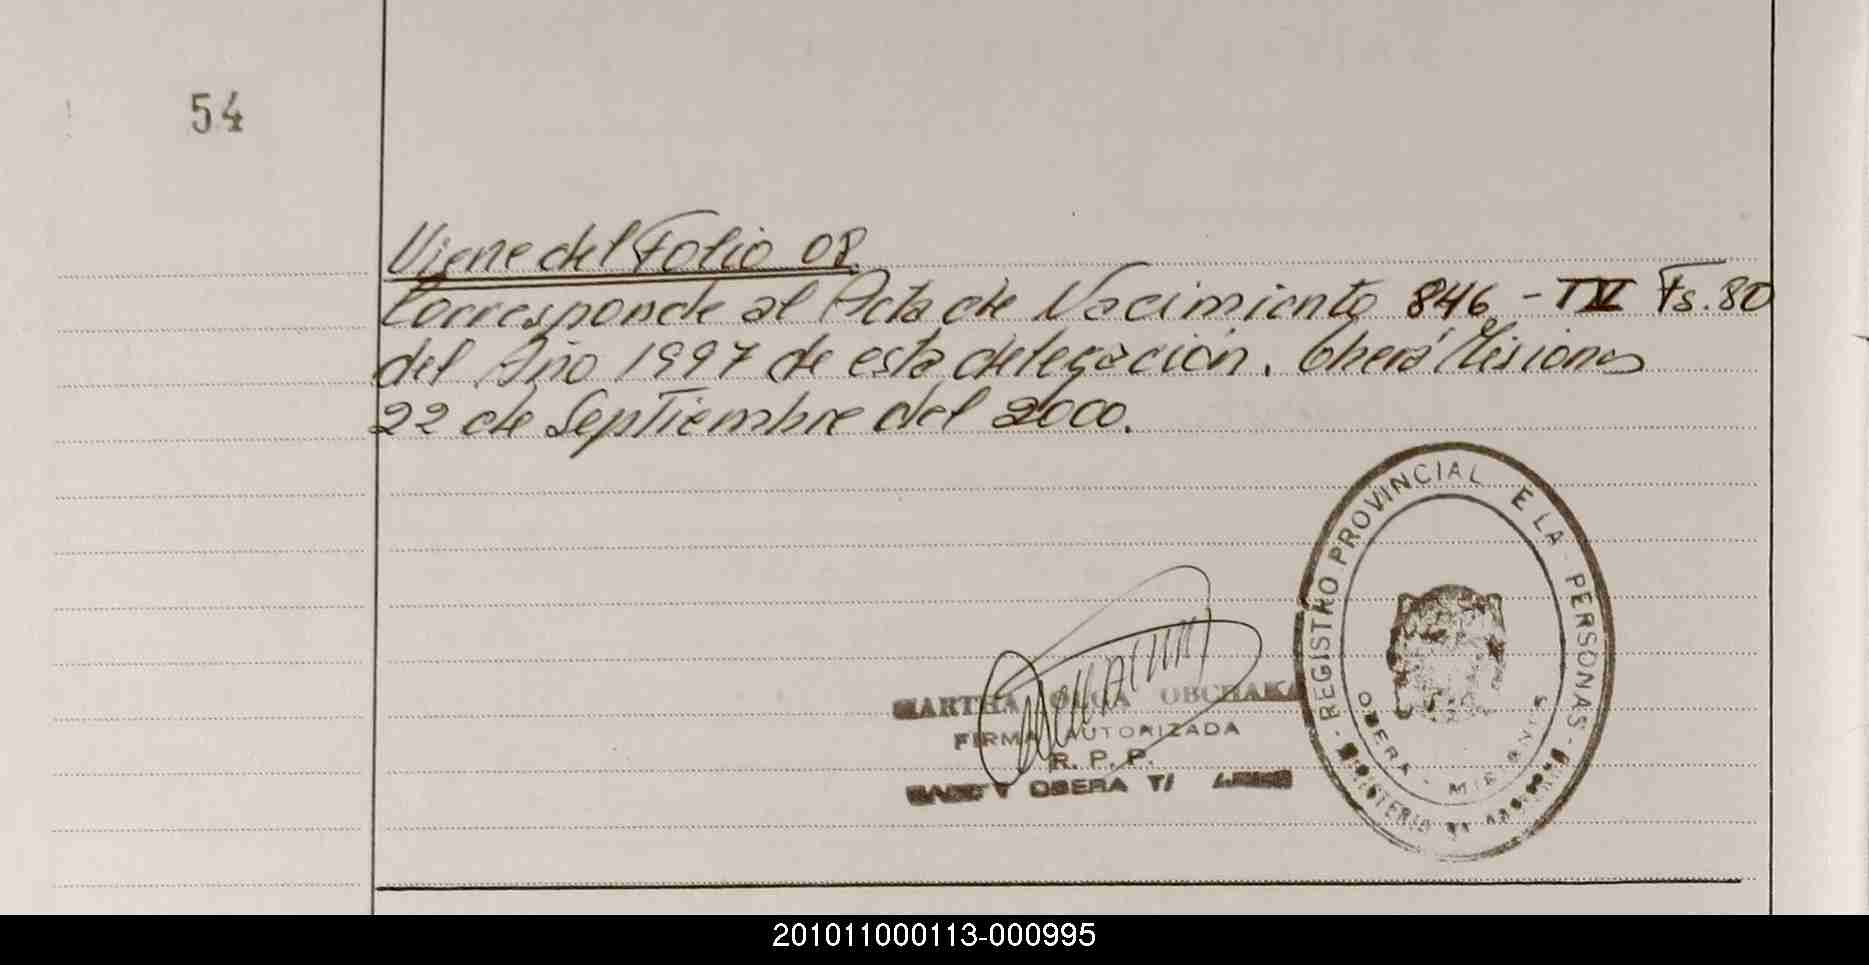 54
Viene del Folio 08
Corresponde al Acta de Nacimiento 846 - TIV Fs. 80
del Año 1997 de esta delegación. Oberá Misiones
22 de Septiembre del 2000.
MARTHA OLGA OBCHAKA
FIRMA AUTORIZADA
R. P. P.
OBERA
REGISTRO PROVINCIAL E LA PERSONAS
OBERA - MISIONES
201011000113-000995